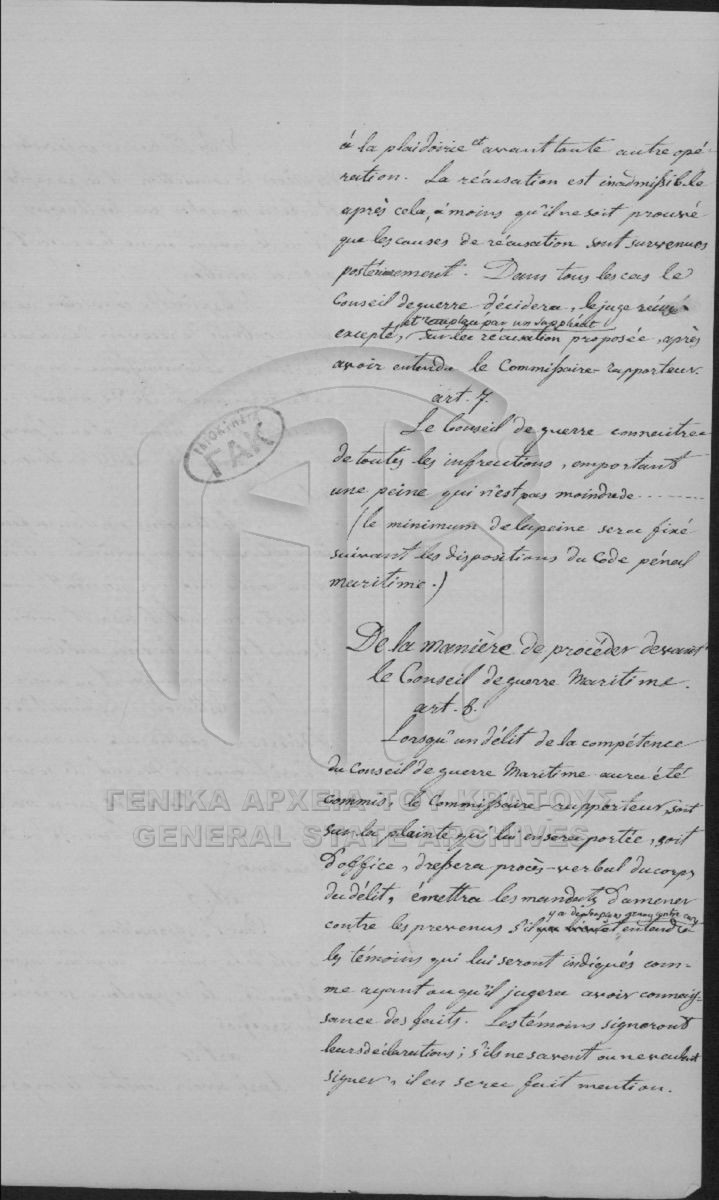 à la plaidoirie et avant toute autre opé-
ration. La récusation est inadmissible
après cela, à moins qu'il ne soit prouvé
que les causes de récusation sont survenues
postérieurement. Dans tous les cas le
Conseil de guerre décidera, le juge récusé
et remplacé par un suppléant
excepté, sur la récusation proposée, après
avoir entendu le Commissaire-rapporteur.
art. 7.
Le Conseil de guerre connaitra
de toutes les infractions, emportant
une peine qui n'est pas moindre de ........
(le minimum de la peine sera fixé
suivant les dispositions du Code pénal
maritime.)
De la manière de procéder devant
le Conseil de guerre Maritime.
art. 8.
Lorsqu'un délit de la compétence
du Conseil de guerre Maritime aura été
commis, le Commissaire-rapporteur, soit
sur la plainte qui lui en sera portée, soit
d'office, dressera procès-verbal du corps
du délit, émettra les mandats d'amener
y a des charges graves contre eux
contre les prevenus s'il et entendra
les témoins qui lui seront indiqués com-
me ayant ou qu'il jugera avoir connais-
sance des faits. Les témoins signeront
leurs déclarations; s'ils ne savent ou ne veulent
signer, il en sera fait mention.
ΓΑΚ
ΓΕΝΙΚΑ ΑΡΧΕΙΑ ΤΟΥ ΚΡΑΤΟΥΣ
GENERAL STATE ARCHIVES